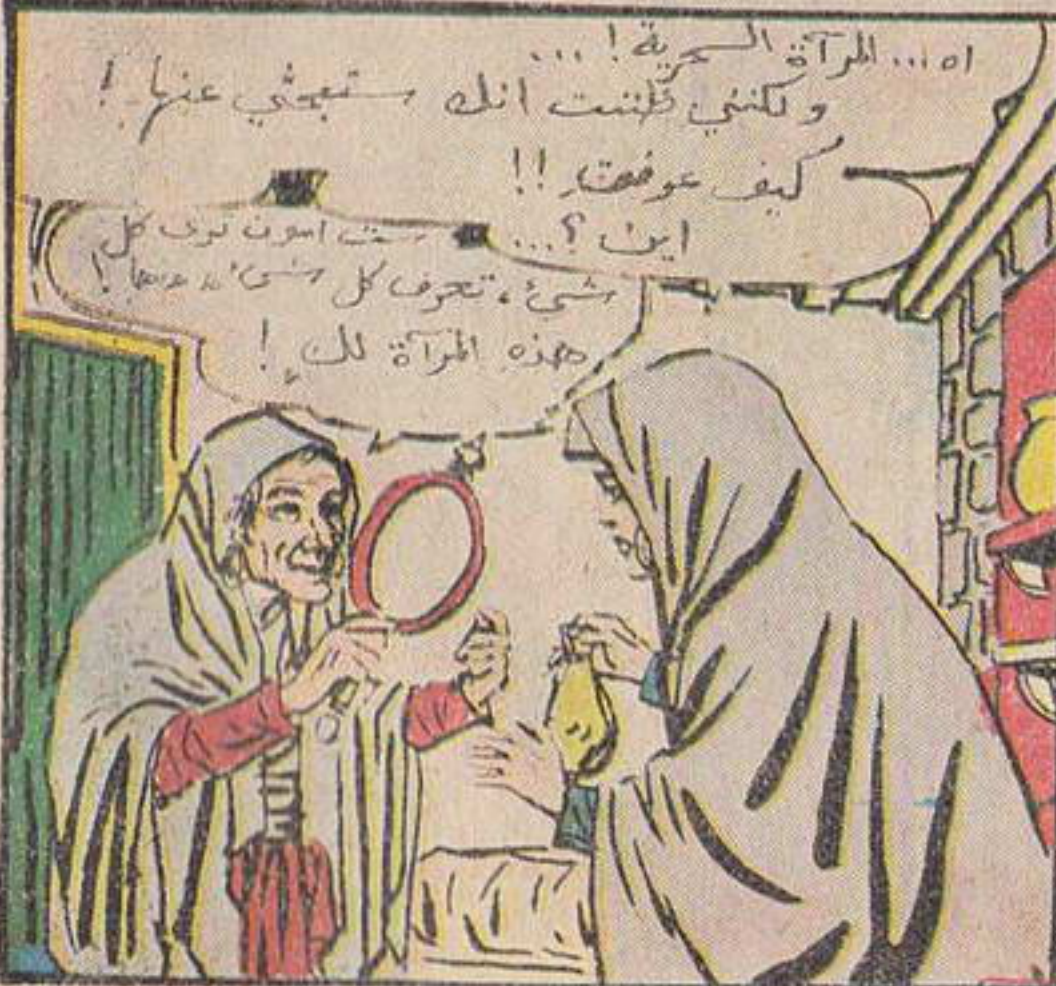 اه... المرآة السحرية!...
ولكنني ظننت انك ستبحثي عنها!
كيف عرفت!!
اين؟...
ست امون ترى كل
شيئ، تعرف كل شيئ
هذه المرآة لكِ!